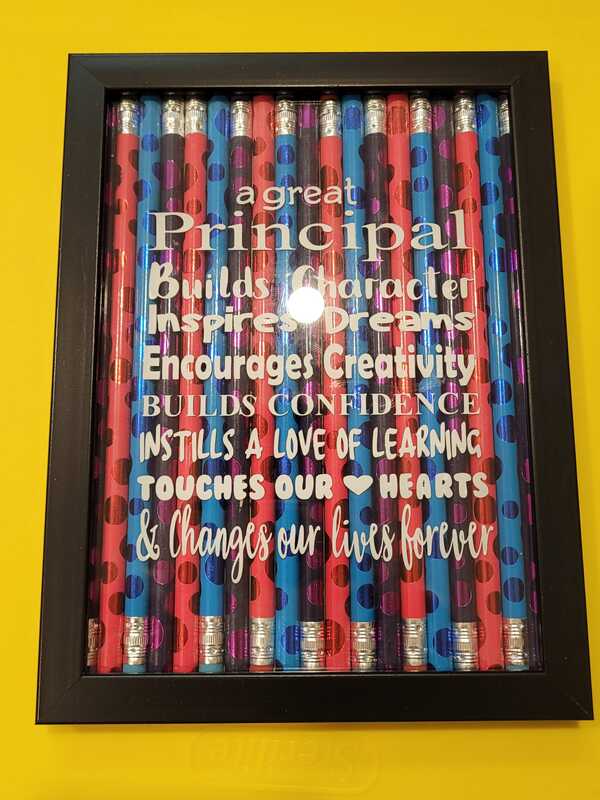 a great
Principal
Builds Character
Inspires Dreams
Encourages Creativity
BUILDS CONFIDENCE
INSTILLS A LOVE OF LEARNING
TOUCHES OUR ♥ HEARTS
& Changes our lives forever